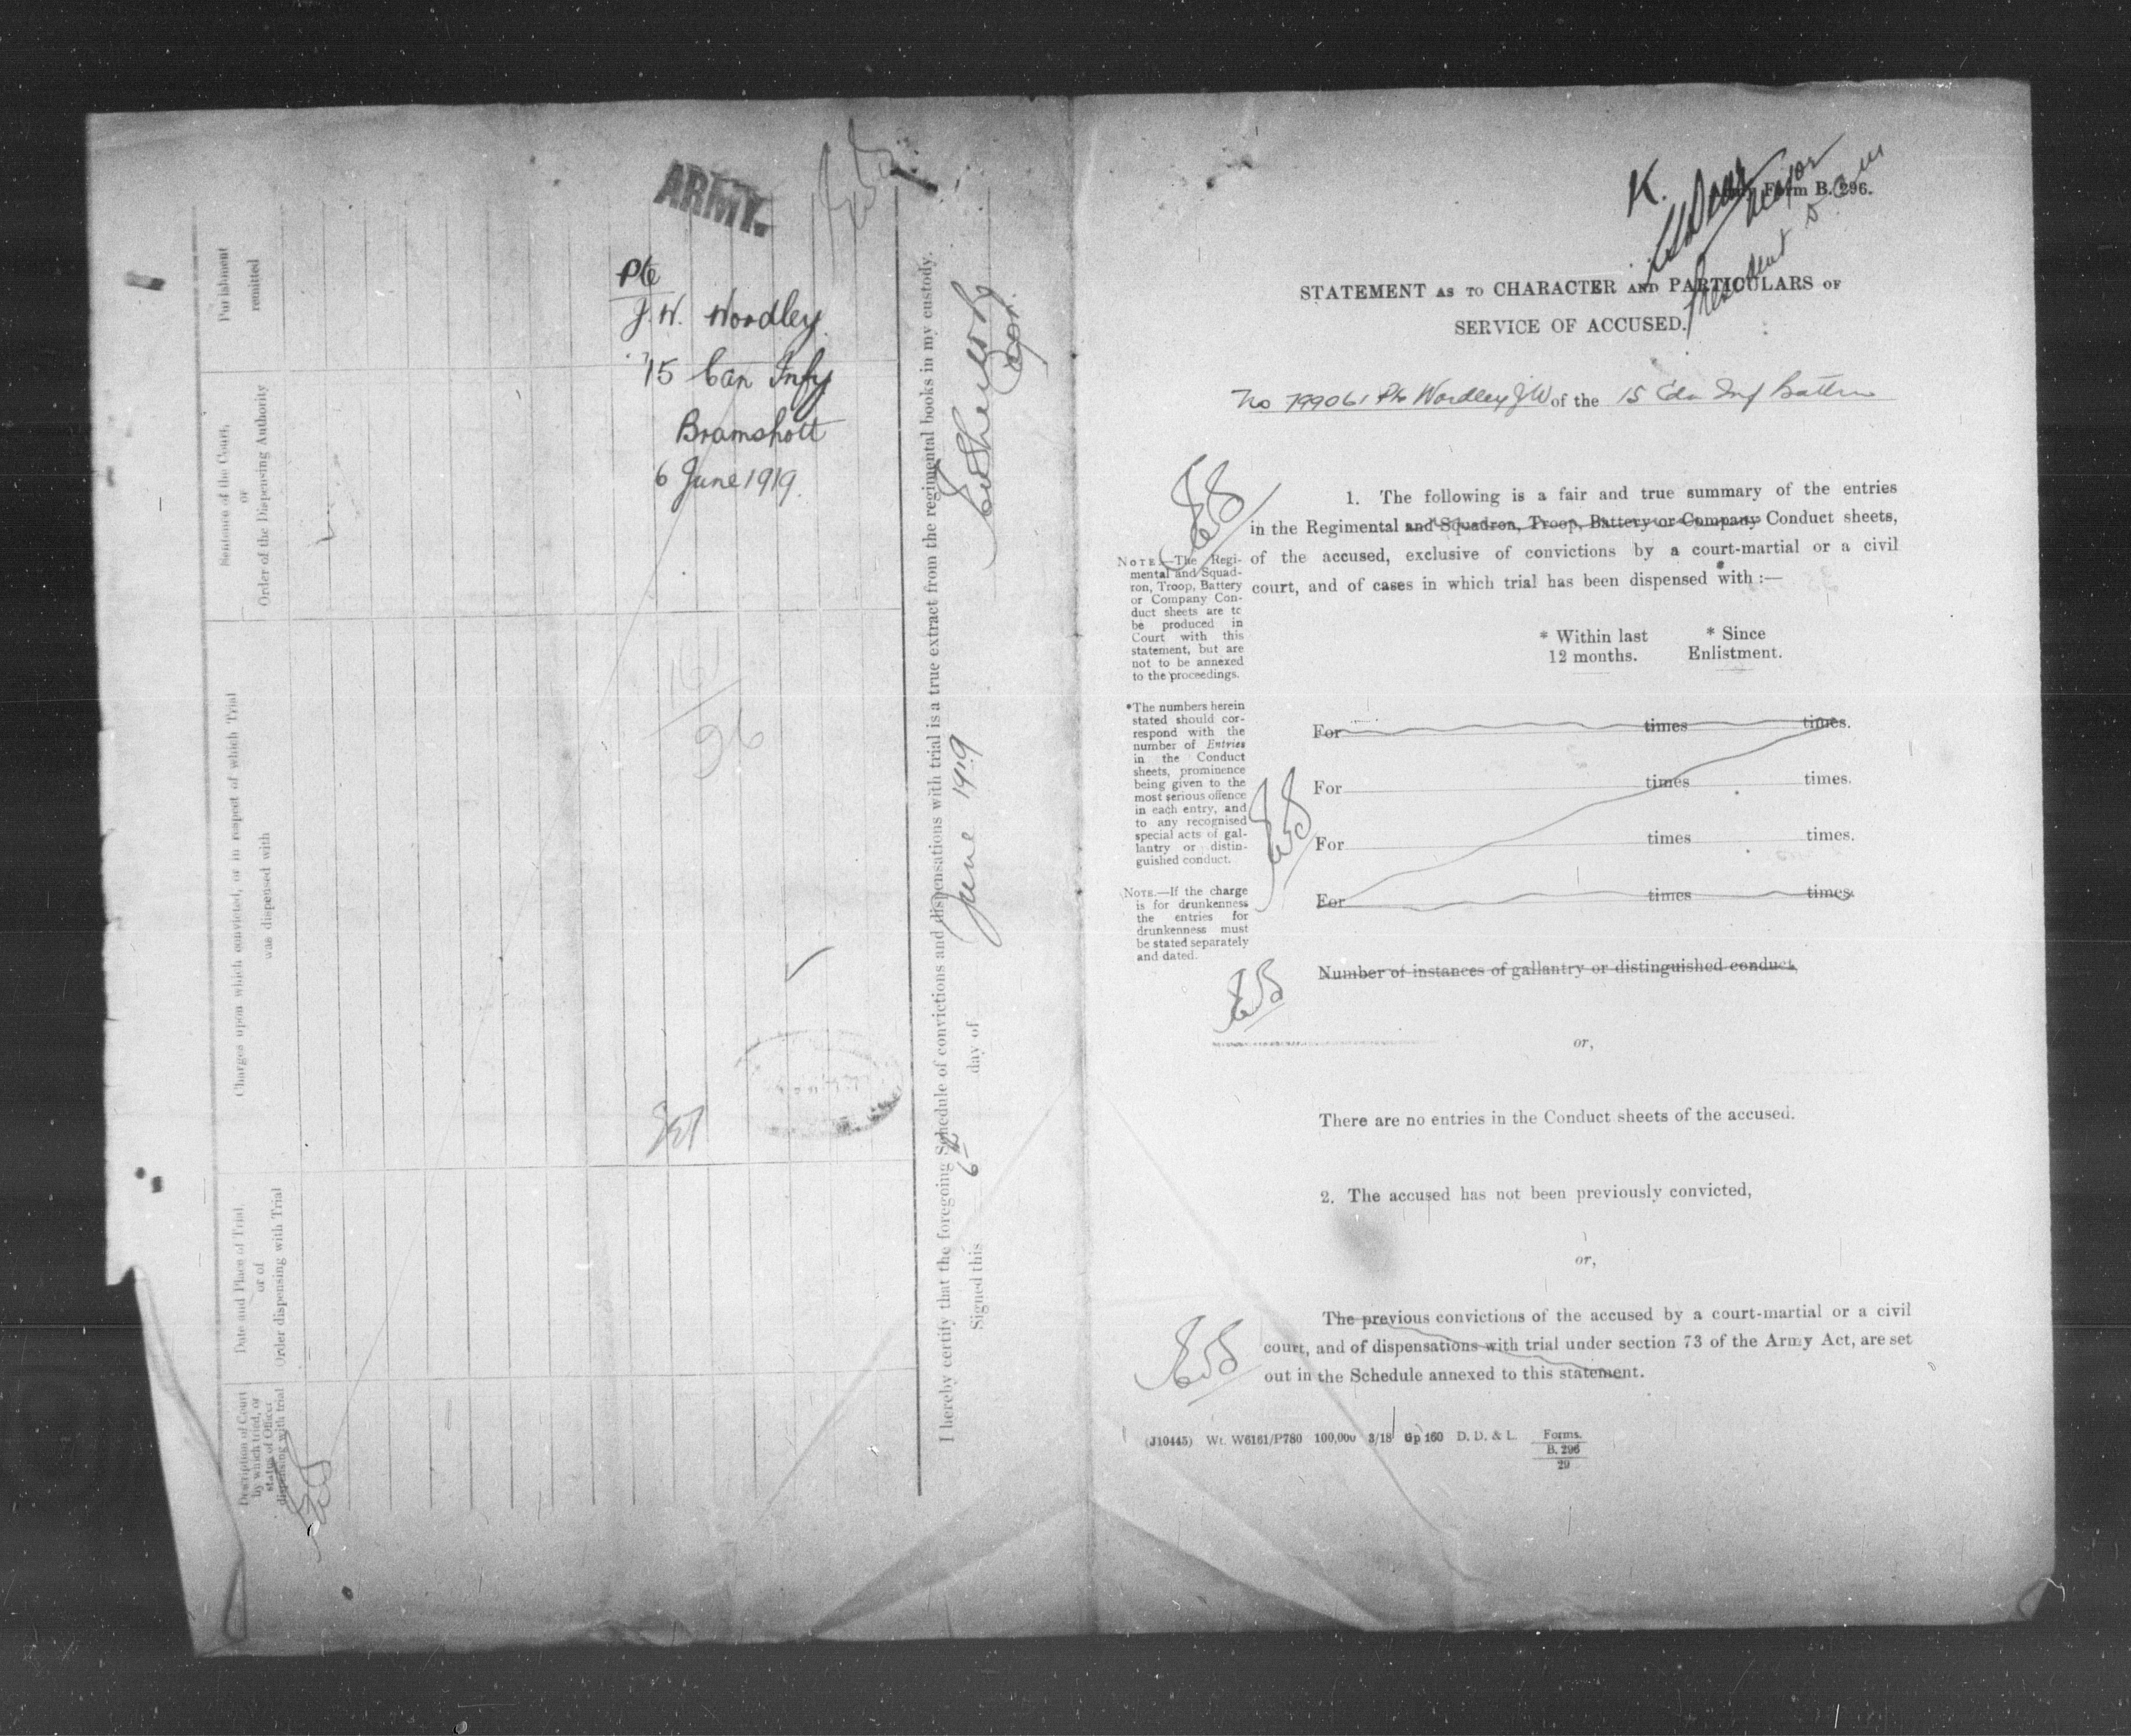 ARMY.
Pte
J.W. Wordley
15 Can Infy
Bramshott
6 June 1919
16
96
Punishment
remitted
Sentence of the Court,
or
Order of the Dispensing Authority
Charges upon which convicted, or in respect of which Trial
was dispensed with
Date and Place of Trial,
or of
Order dispensing with Trial
Description of Court
by which tried, or
status of Officer
dispensing with trial
I hereby certify that the foregoing Schedule of convictions and dispensations with trial is a true extract from the regimental books in my custody.
Signed this 6th day of June 1919
Capt.
K.
Major
President
Form B. 296.
STATEMENT AS TO CHARACTER AND PARTICULARS OF
SERVICE OF ACCUSED.
No 799061 Pte Wordley J W of the 15 Cdn Inf Battn
1. The following is a fair and true summary of the entries
in the Regimental and Squadron, Troop, Battery or Company Conduct sheets,
of the accused, exclusive of convictions by a court-martial or a civil
court, and of cases in which trial has been dispensed with :—
NOTE.—The Regi-
mental and Squad-
ron, Troop, Battery
or Company Con-
duct sheets are to
be produced in
Court with this
statement, but are
not to be annexed
to the proceedings.
*The numbers herein
stated should cor-
respond with the
number of Entries
in the Conduct
sheets, prominence
being given to the
most serious offence
in each entry, and
to any recognised
special acts of gal-
lantry or distin-
guished conduct.
NOTE.—If the charge
is for drunkenness
the entries for
drunkenness must
be stated separately
and dated.
* Within last * Since
12 months. Enlistment.
For times times.
For times times.
For times times.
For times times.
Number of instances of gallantry or distinguished conduct,
or,
There are no entries in the Conduct sheets of the accused.
2. The accused has not been previously convicted,
or,
The previous convictions of the accused by a court-martial or a civil
court, and of dispensations with trial under section 73 of the Army Act, are set
out in the Schedule annexed to this statement.
(J10445) Wt. W6161/P780 100,000 3/18 Gp 160 D. D. & L. Forms.
B. 296
29